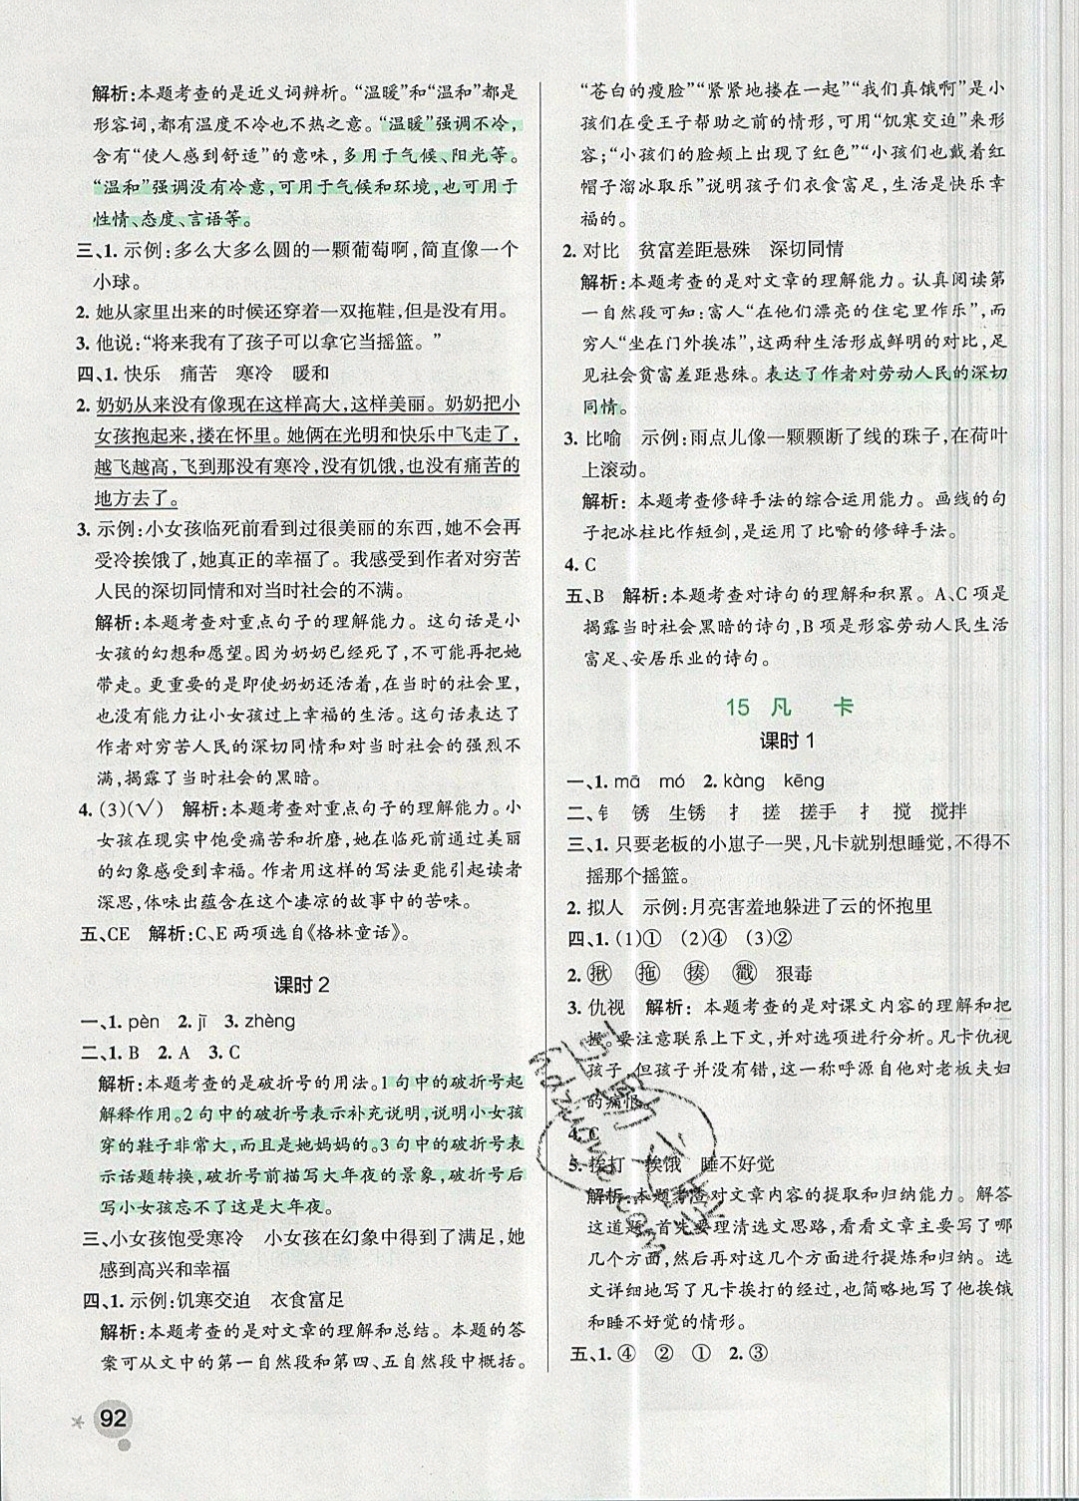 解析:本题考查的是近义词辨析。“温暖”和“温和”都是
形容词,都有温度不冷也不热之意。“温暖”强调不冷,
含有“使人感到舒适”的意味,多用于气候、阳光等。
“温和”强调没有冷意,可用于气候和环境,也可用于
性情、态度、言语等。
三、1. 示例:多么大多么圆的一颗葡萄啊,简直像一个
小球。
2. 她从家里出来的时候还穿着一双拖鞋,但是没有用。
3. 他说:“将来我有了孩子可以拿它当摇篮。”
四、1. 快乐 痛苦 寒冷 暖和
2. 奶奶从来没有像现在这样高大,这样美丽。奶奶把小
女孩抱起来,搂在怀里。她俩在光明和快乐中飞走了,
越飞越高,飞到那没有寒冷,没有饥饿,也没有痛苦的
地方去了。
3. 示例:小女孩临死前看到过很美丽的东西,她不会再
受冷挨饿了,她真正的幸福了。我感受到作者对穷苦
人民的深切同情和对当时社会的不满。
解析:本题考查对重点句子的理解能力。这句话是小
女孩的幻想和愿望。因为奶奶已经死了,不可能再把她
带走。更重要的是即使奶奶还活着,在当时的社会里,
也没有能力让小女孩过上幸福的生活。这句话表达了
作者对穷苦人民的深切同情和对当时社会的强烈不
满,揭露了当时社会的黑暗。
4. (3)(√) 解析:本题考查对重点句子的理解能力。小
女孩在现实中饱受痛苦和折磨,她在临死前通过美丽
的幻象感受到幸福。作者用这样的写法更能引起读者
深思,体味出蕴含在这个凄凉的故事中的苦味。
五、CE 解析:C、E两项选自《格林童话》。
课时2
一、1. pèn 2. jī 3. zhèng
二、1. B 2. A 3. C
解析:本题考查的是破折号的用法。1句中的破折号起
解释作用。2句中的破折号表示补充说明,说明小女孩
穿的鞋子非常大,而且是她妈妈的。3句中的破折号表
示话题转换,破折号前描写大年夜的景象,破折号后
写小女孩忘不了这是大年夜。
三、小女孩饱受寒冷 小女孩在幻象中得到了满足,她
感到高兴和幸福
四、1. 示例:饥寒交迫 衣食富足
解析:本题考查的是对文章的理解和总结。本题的答
案可从文中的第一自然段和第四、五自然段中概括。
92
“苍白的瘦脸”“紧紧地搂在一起”“我们真饿啊”是小
孩们在受王子帮助之前的情形,可用“饥寒交迫”来形
容;“小孩们的脸颊上出现了红色”“小孩们也戴着红
帽子溜冰取乐”说明孩子们衣食富足,生活是快乐幸
福的。
2. 对比 贫富差距悬殊 深切同情
解析:本题考查的是对文章的理解能力。认真阅读第
一自然段可知:富人“在他们漂亮的住宅里作乐”,而
穷人“坐在门外挨冻”,这两种生活形成鲜明的对比,足
见社会贫富差距悬殊。表达了作者对劳动人民的深切
同情。
3. 比喻 示例:雨点儿像一颗颗断了线的珠子,在荷叶
上滚动。
解析:本题考查修辞手法的综合运用能力。画线的句
子把冰柱比作短剑,是运用了比喻的修辞手法。
4. C
五、B 解析:本题考查对诗句的理解和积累。A、C项是
揭露当时社会黑暗的诗句,B项是形容劳动人民生活
富足、安居乐业的诗句。
15 凡 卡
课时1
一、1. mā mó 2. kàng kēng
二、钅 锈 生锈 扌 搓 搓手 扌 搅 搅拌
三、1. 只要老板的小崽子一哭,凡卡就别想睡觉,不得不
摇那个摇篮。
2. 拟人 示例:月亮害羞地躲进了云的怀抱里
四、1. (1)① (2)④ (3)②
2. 揪 拖 揍 戳 狠毒
3. 仇视 解析:本题考查的是对课文内容的理解和把
握。要注意联系上下文,并对选项进行分析。凡卡仇视
孩子,但孩子并没有错,这一称呼源自他对老板夫妇
的痛恨。
4.
5. 挨打 挨饿 睡不好觉
解析:本题考查对文章内容的提取和归纳能力。解答
这道题,首先要理清选文思路,看看文章主要写了哪
几个方面,然后再对这几个方面进行提炼和归纳。选
文详细地写了凡卡挨打的经过,也简略地写了他挨饿
和睡不好觉的情形。
五、1. ④ ② ① 2. ③